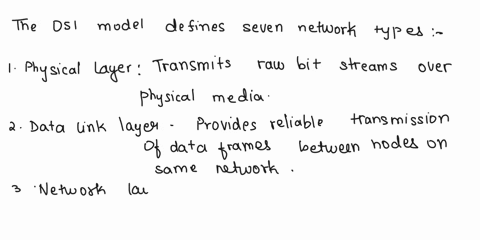 The OSI model defines seven network types :-
1. Physical Layer : Transmits raw bit streams over
physical media.
2. Data link layer - Provides reliable transmission
Of data frames between nodes on
same network .
3 . Network la